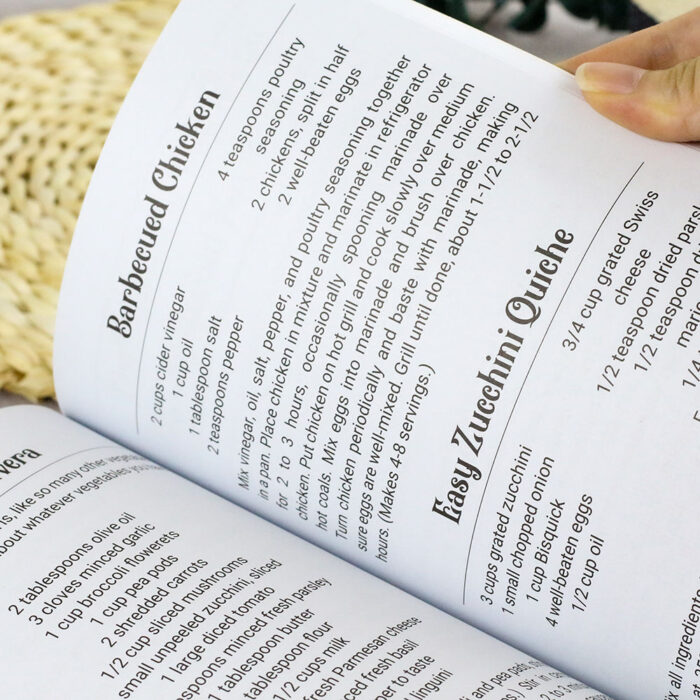 Barbecued Chicken
2 cups cider vinegar
1 cup oil
1 tablespoon salt
2 teaspoons pepper
4 teaspoons poultry
seasoning
2 chickens, split in half
2 well-beaten eggs
Mix vinegar, oil, salt, pepper, and poultry seasoning together
in a pan. Place chicken in mixture and marinate in refrigerator
for 2 to 3 hours, occasionally spooning marinade over
chicken. Put chicken on hot grill and cook slowly over medium
hot coals. Mix eggs into marinade and brush over chicken.
Turn chicken periodically and baste with marinade, making
sure eggs are well-mixed. Grill until done, about 1-1/2 to 2-1/2
hours. (Makes 4-8 servings.)
Easy Zucchini Quiche
3 cups grated zucchini
1 small chopped onion
1 cup Bisquick
4 well-beaten eggs
1/2 cup oil
3/4 cup grated Swiss
cheese
1/2 teaspoon dried
1/2 teaspoon
1/4
all ingredients
like so many other
about whatever vegetables
2 tablespoons olive oil
3 cloves minced garlic
1 cup broccoli flowerets
1 cup pea pods
2 shredded carrots
1/2 cup sliced mushrooms
small unpeeled zucchini, sliced
1 large diced tomato
minced fresh parsley
tablespoon butter
tablespoon flour
1/2 cups milk
fresh Parmesan cheese
fresh basil
to taste